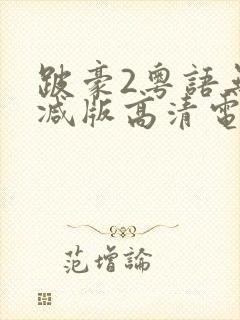 跛豪2粤語
減版高清電
范增論